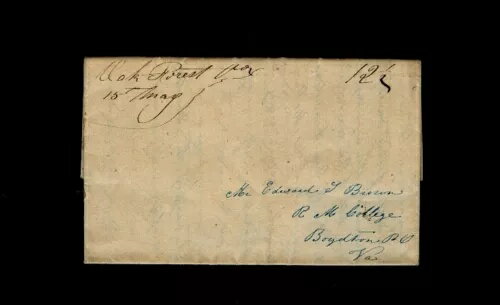 Oak Forest Va
15th May
12½
Mr Edward T Brown
R. M. College
Boydton P. O
Va